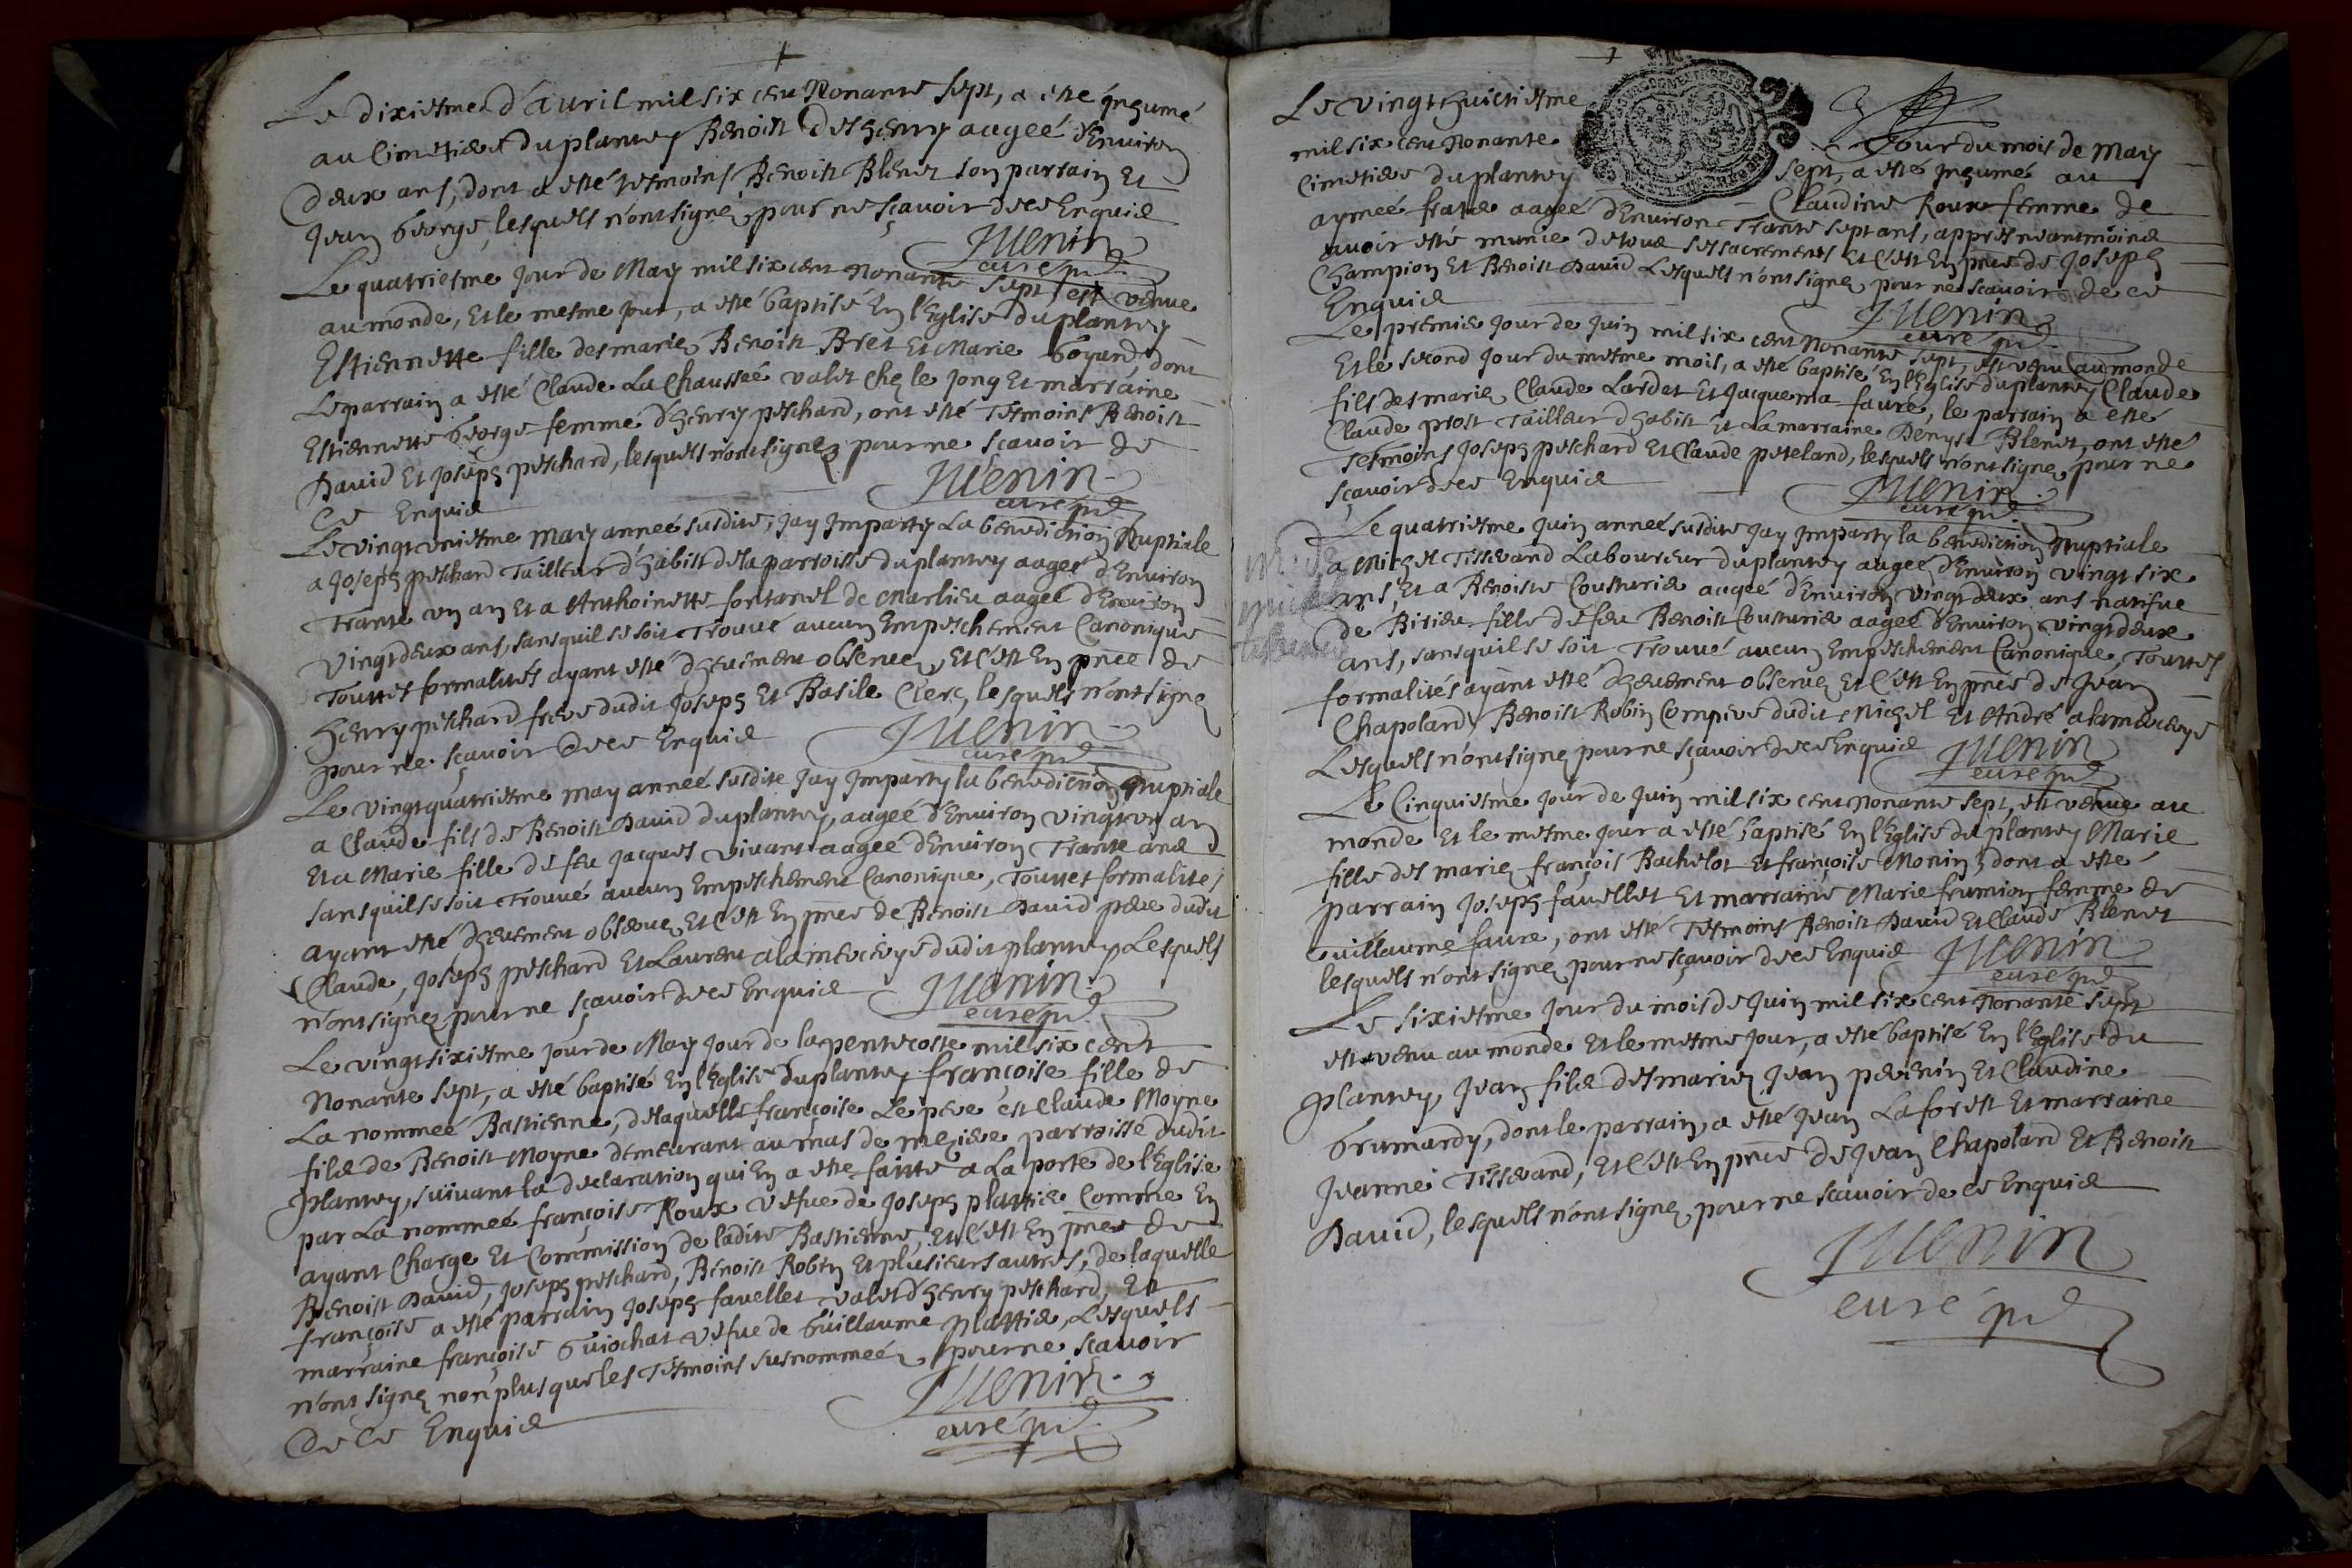 Le dixiesme d'avril mil six cen nonante sept, a esté inhumé
au Cimetiere du plantey Benoist deshenry aageé d'Environ
deux ans, dont a esté tesmoins Benoist Blenet son parrain Et
Jean George, lesquels n'ont signez pour ne sçavoir de ce Enquis
Juenin
curé prd
Le quatriesme Jour de May mil six cent nonante sept est venue
au monde, Et le mesme jour, a esté baptisé En l'Eglise du plantey
Estiennette fille des mariez Benoist Bret Et Marie Goyard, dont
le parrain a esté Claude La Chausseé valet chez le Jong Et marraine
Estiennette George femme d'henry peschard, ont esté Tesmoins Benoist
David Et Joseph peschard, lesquels n'ont signez pour ne scavoir de
Ce Enquis
Juenin
curé prd
Le vingt uniesme may anneé susdite, jay Imparty La benediction Nuptiale
a Joseph peschard Tailleur d'habist de la parroisse du plantey aageé d'Environ
Trante un an Et a Anthoinette fontanel de Marlieu aageé d'Environ
Vingt deux ans, sans quil se soit Trouvé aucun Empeschement Canonique
Touttes formalités ayant esté dheuement observeez, Et C'est En pñce de
henry peschard frere dudit Joseph Et Basile Clerc, lesquels n'ont signez
pour ne sçavoir de ce Enquis
Juenin
curé prd
Le vingt quatriesme may anneé susdite Jay Imparty la benediction Nuptiale
a Claude fils de Benoist David du plantey, aageé d'Environ vingt un an
Et a Marie fille de feu Jacques vivant aageé d'Environ Trante ans
sans quil se soit Trouvé aucun Empeschement Canonique, Touttes formalités
ayant esté dheuement observez, Et C'est En pñce de Benoist David pere dudit
Claude, Joseph peschard Et Laurent alamercerye dudit plantey Lesquels
n'ont signez pour ne sçavoir de ce Enquis
Juenin
curé prd
Le vingt sixiesme Jour de May Jour de la pentecoste mil six cent
Nonante sept, a esté baptisé En l'Eglise du plantey françoise fille de
La nommeé Bastienne, de laquelle françoise Le pere est Claude Moyne
fils de Benoist Moyne demeurant au mas de meziere parroisse dudit
Plantey, suivant la declaration qui En a esté faitte a La porte de l'Eglise
par La nommeé françoise Roux vefue de Joseph plattie Comme En
ayant Charge Et Commission de ladite Bastienne, Et C'est En pñce de
Benoist David, Joseph peschard, Benoist Robin Et plusieurs autres, de laquelle
françoise a esté parrain Joseph favellet valet d'henry peschard, Et
marraine françoise Guiochat vefue de Guillaume plattie, Lesquels
n'ont signez non plus que les Tesmoins susnommeéz pour ne sçavoir
de ce Enquis
Juenin
curé prd
Le vingt huictiesme Jour du mois de May
mil six cent nonante sept, a esté inhumé au
Cimetiere du plantey Claudine Roux femme de
aymeé aageé d'Environ Trante sept ans, appres neantmoins
avoir esté munie de tous ses sacrements Et C'est En pñce de Joseph
Champion Et Benoist David Lesquels n'ont signez pour ne scavoir de ce
Enquis
Juenin
curé prd
Le premier Jour de Juin mil six cent nonante sept, est venu au monde
Et le second Jour du mesme mois, a esté baptisé En l'Eglise du plantey Claude
fils des mariez Claude Lardet Et Jacquema faure, le parrain a esté
Claude prost Tailleur d'habist Et La marraine Denyse Blenet, ont esté
Tesmoins Joseph peschard Et Claude peteland, lesquels n'ont signez pour ne
sçavoir de ce Enquis
Juenin
curé prd
Le quatriesme Juin anneé susdite Jay Imparty la benediction Nuptiale
a Michel Tisserand Laboureur du plantey aageé d'Environ vingt six
ans, Et a Benoiste Cousturie aageé d'Environ vingt deux ans natifue
de Birieu fille de feu Benoist Cousturie aageé d'Environ vingt deux
ans, sans quil se soit Trouvé aucun Empeschement Canonique, Touttes
formalités ayant esté dheuement observez Et C'est En pñce de Jean
Chapoland, Benoist Robin Compere dudit Michel Et André alamercerye
Lesquels n'ont signez pour ne sçavoir de ce Enquis
Juenin
curé prd
Le Cinquiesme Jour de Juin mil six cent nonante sept, est venue au
monde Et le mesme Jour a esté baptisé En l'Eglise du plantey Marie
fille des mariez françois Bachelot Et françoise Monin, dont a esté
parrain Joseph favellet Et marraine Marie frumion femme de
Guillaume faure, ont esté Tesmoins Benoist David Et Claude Blenet
lesquels n'ont signez pour ne sçavoir de ce Enquis
Juenin
curé prd
Le sixiesme Jour du mois de Juin mil six cent nonante sept
est venu au monde Et le mesme Jour, a esté baptisé En l'Eglise du
plantey Jean fils des mariez Jean perenin Et Claudine
Grumardy, dont le parrain a esté Jean Laforest Et marraine
Jeanne Tisserand, Et C'est En pñce de Jean Chapoland Et Benoist
David, lesquels n'ont signez pour ne scavoir de ce Enquis
Juenin
curé prd